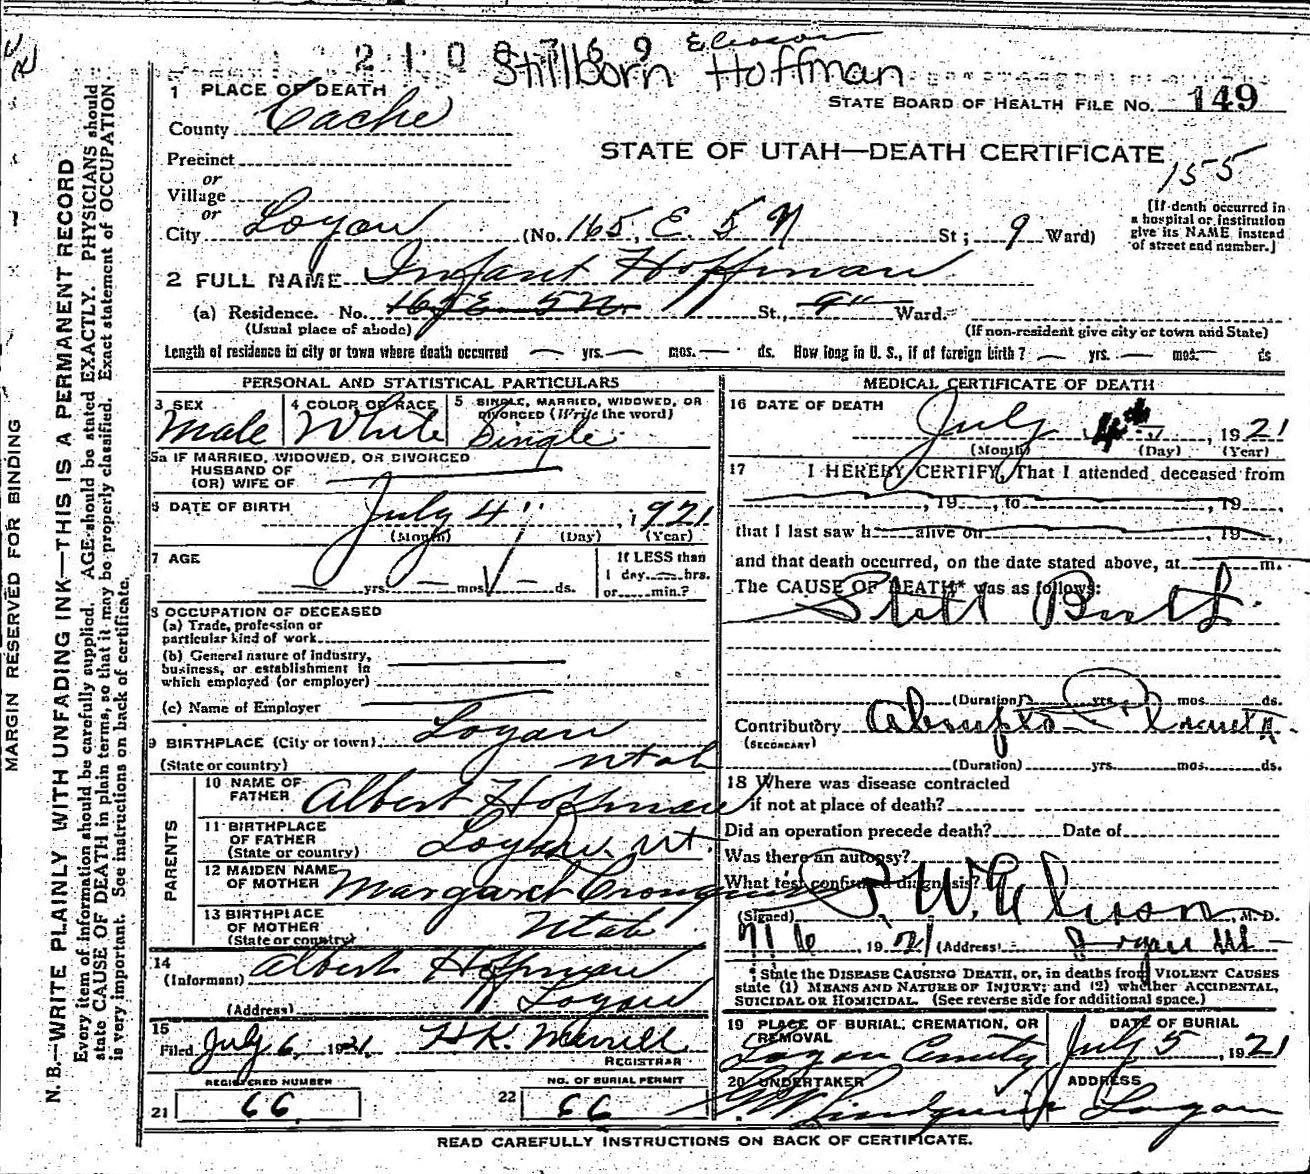 210 8769 Eliason
Stillborn Hoffman
1 PLACE OF DEATH
County Cache
STATE BOARD OF HEALTH FILE NO. 149
STATE OF UTAH—DEATH CERTIFICATE
155
Precinct
or
Village
or
City Logan (No. 165, E. 5 N St; 9 Ward)
(If death occurred in
a hospital or institution
give its NAME, instead
of street and number.)
2 FULL NAME Infant Hoffman
(a) Residence. No. 165 E 5 N. St., 9" Ward.
(Usual place of abode) (If non-resident give city or town and State)
Length of residence in city or town where death occurred — yrs. — mos. — ds. How long in U. S., if of foreign birth? — yrs. — mos. — ds
PERSONAL AND STATISTICAL PARTICULARS
3 SEX
Male
4 COLOR OR RACE
White
5 SINGLE, MARRIED, WIDOWED, OR
DIVORCED (Write the word)
Single
5a IF MARRIED, WIDOWED, OR DIVORCED
HUSBAND OF
(OR) WIFE OF
6 DATE OF BIRTH July 4", 1921
(Month) (Day) (Year)
7 AGE
— yrs. — mos. — ds.
If LESS than
1 day — hrs.
or — min.?
8 OCCUPATION OF DECEASED
(a) Trade, profession or
particular kind of work
(b) General nature of industry,
business, or establishment in
which employed (or employer)
(c) Name of Employer
9 BIRTHPLACE (City or town) Logan
(State or country) Utah
PARENTS
10 NAME OF
FATHER Albert Hoffman
11 BIRTHPLACE
OF FATHER Logan. Ut.
(State or country)
12 MAIDEN NAME
OF MOTHER Margaret Cronquist
13 BIRTHPLACE
OF MOTHER Utah
(State or country)
14
(Informant) Albert Hoffman
(Address) Logan
15
Filed July 6, 1921 H.K. Merrill
REGISTRAR
REGISTERED NUMBER
21 66
NO. OF BURIAL PERMIT
22 66
MEDICAL CERTIFICATE OF DEATH
16 DATE OF DEATH
July 4th, 1921
(Month) (Day) (Year)
17 I HEREBY CERTIFY, That I attended deceased from
, 19 , to , 19 ,
that I last saw h alive on , 19 ,
and that death occurred, on the date stated above, at m.
The CAUSE OF DEATH* was as follows:
Still Birth
(Duration) yrs. mos. ds.
Contributory
(SECONDARY)
(Duration) yrs. mos. ds.
18 Where was disease contracted
if not at place of death?
Did an operation precede death? Date of
Was there an autopsy?
What test confirmed diagnosis?
(Signed) Eliason M. D.
7/6 1921 (Address) Logan Ut
*State the DISEASE CAUSING DEATH, or, in deaths from VIOLENT CAUSES
state (1) MEANS AND NATURE OF INJURY; and (2) whether ACCIDENTAL,
SUICIDAL OR HOMICIDAL. (See reverse side for additional space.)
19 PLACE OF BURIAL, CREMATION, OR
REMOVAL
Logan Cemetery
DATE OF BURIAL
July 5, 1921
20 UNDERTAKER
Lindquist
ADDRESS
Logan
READ CAREFULLY INSTRUCTIONS ON BACK OF CERTIFICATE.
MARGIN RESERVED FOR BINDING
N. B.—WRITE PLAINLY WITH UNFADING INK—THIS IS A PERMANENT RECORD
Every item of information should be carefully supplied. AGE should be stated EXACTLY. PHYSICIANS should
state CAUSE OF DEATH in plain terms, so that it may be properly classified. Exact statement of OCCUPATION
is very important. See instructions on back of certificate.